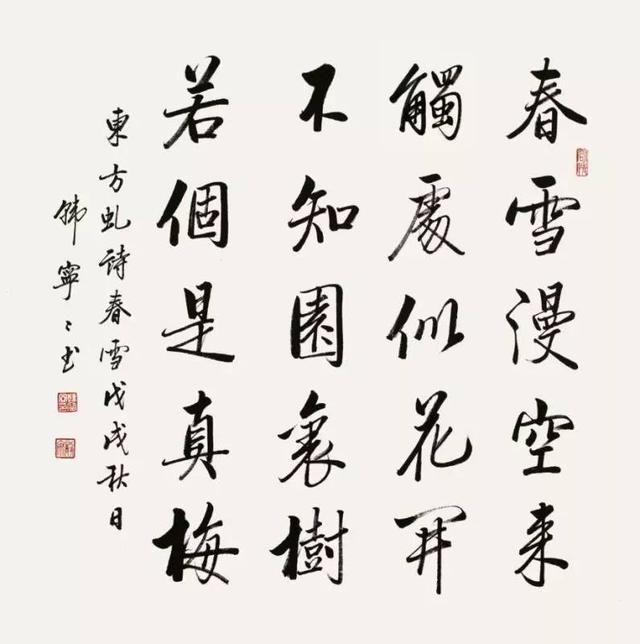 春雪漫空来
觸處似花开
不知園裏樹
若個是真梅
東方虬詩春雪戊戌秋日
韩寧〻书